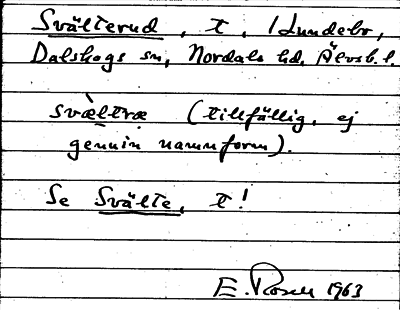 Svälterud, t, /Lundebo,
Dalskogs sn, Nordals hd, Älvsb. l.
svæ̀ltræ (tillfällig, ej
genuin namnform).
Se Svälte, t!
E. Rosell 1963